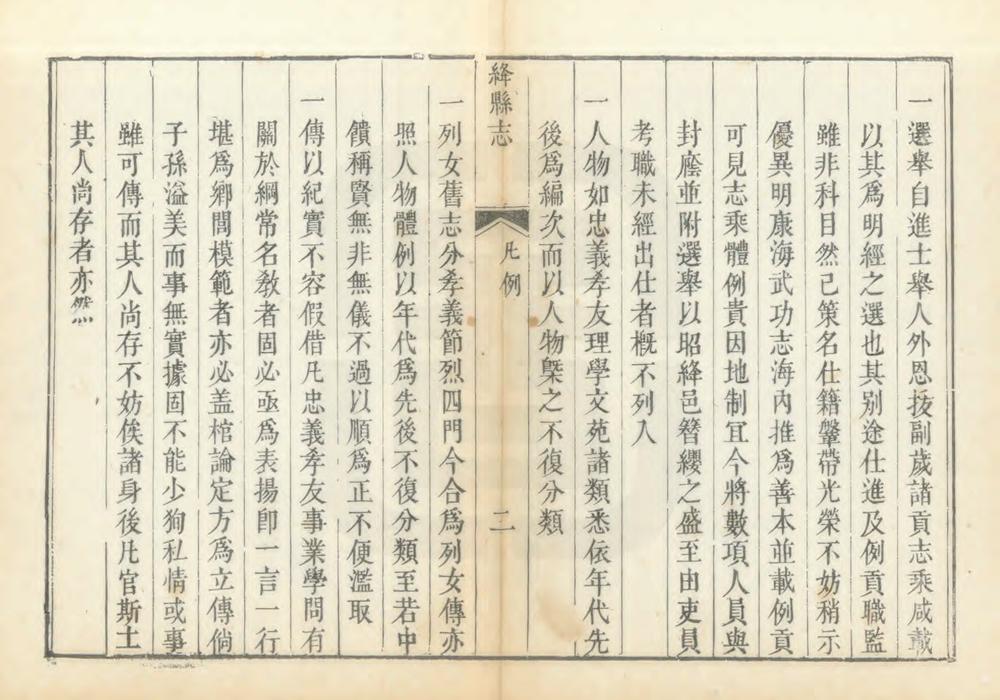 一選舉自進士舉人外恩拔副歲諸貢志乘咸載
以其爲明經之選也其别途仕進及例貢職監
雖非科目然已策名仕籍鞶帶光榮不妨稍示
優異明康海武功志海内推爲善本並載例貢
可見志乘體例貴因地制宜今將數項人員與
封廕並附選舉以昭絳邑簪纓之盛至由吏員
考職未經出仕者槪不列入
一人物如忠義孝友理學文苑諸類悉依年代先
後爲編次而以人物槩之不復分類
絳縣志
凡例
二
一列女舊志分孝義節烈四門今合爲列女傳亦
照人物體例以年代爲先後不復分類至若中
饋稱賢無非無儀不過以順爲正不便濫取
一傳以紀實不容假借凡忠義孝友事業學問有
關於綱常名教者固必亟爲表揚卽一言一行
堪爲鄉閭模範者亦必盖棺論定方爲立傳倘
子孫溢美而事無實據固不能少狥私情或事
雖可傳而其人尚存不妨俟諸身後凡官斯土
其人尚存者亦然